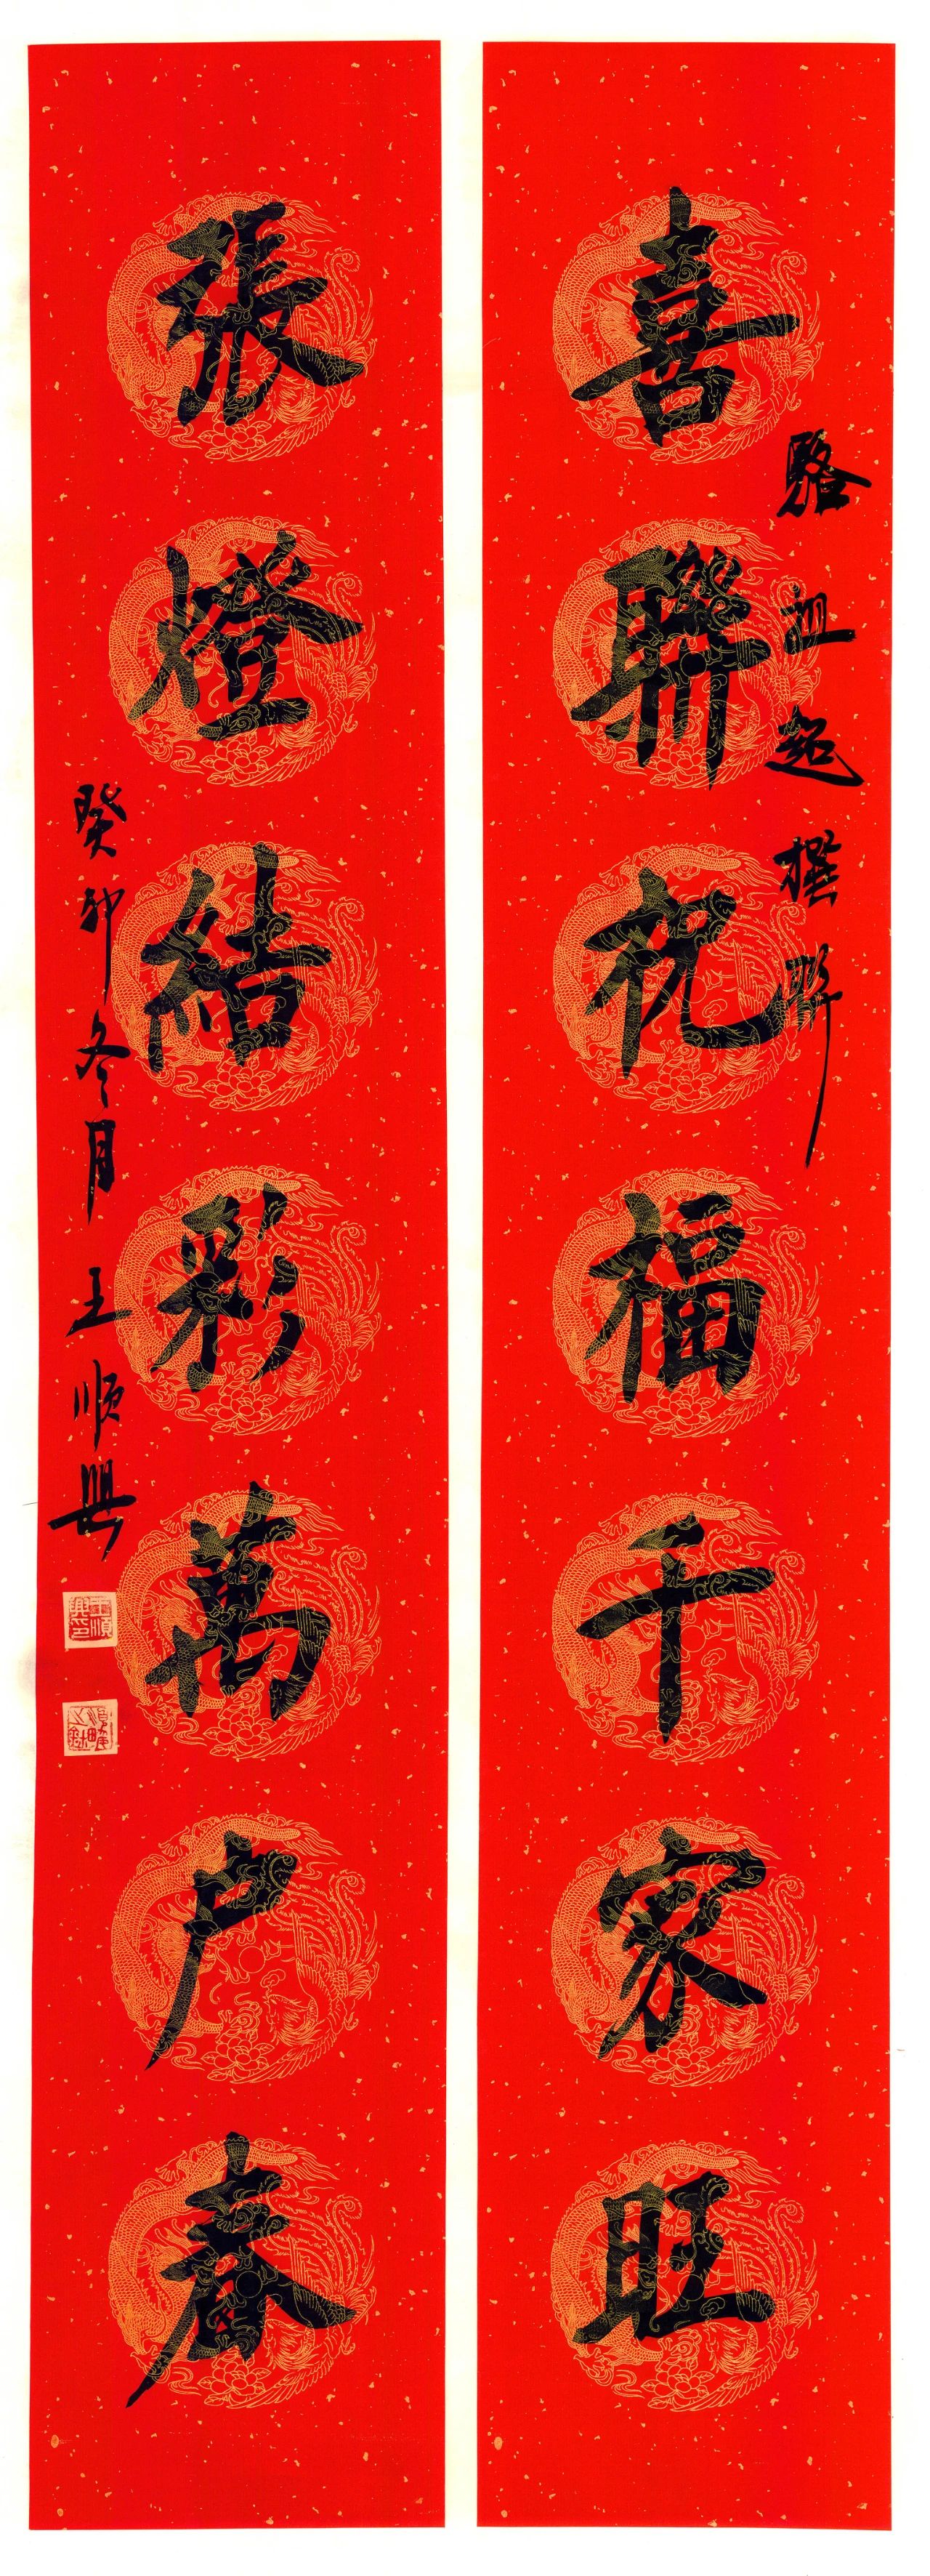 喜聯祝福千家旺
駱祖超撰聯
張燈結彩萬户春
癸卯冬月王順興
王順興印